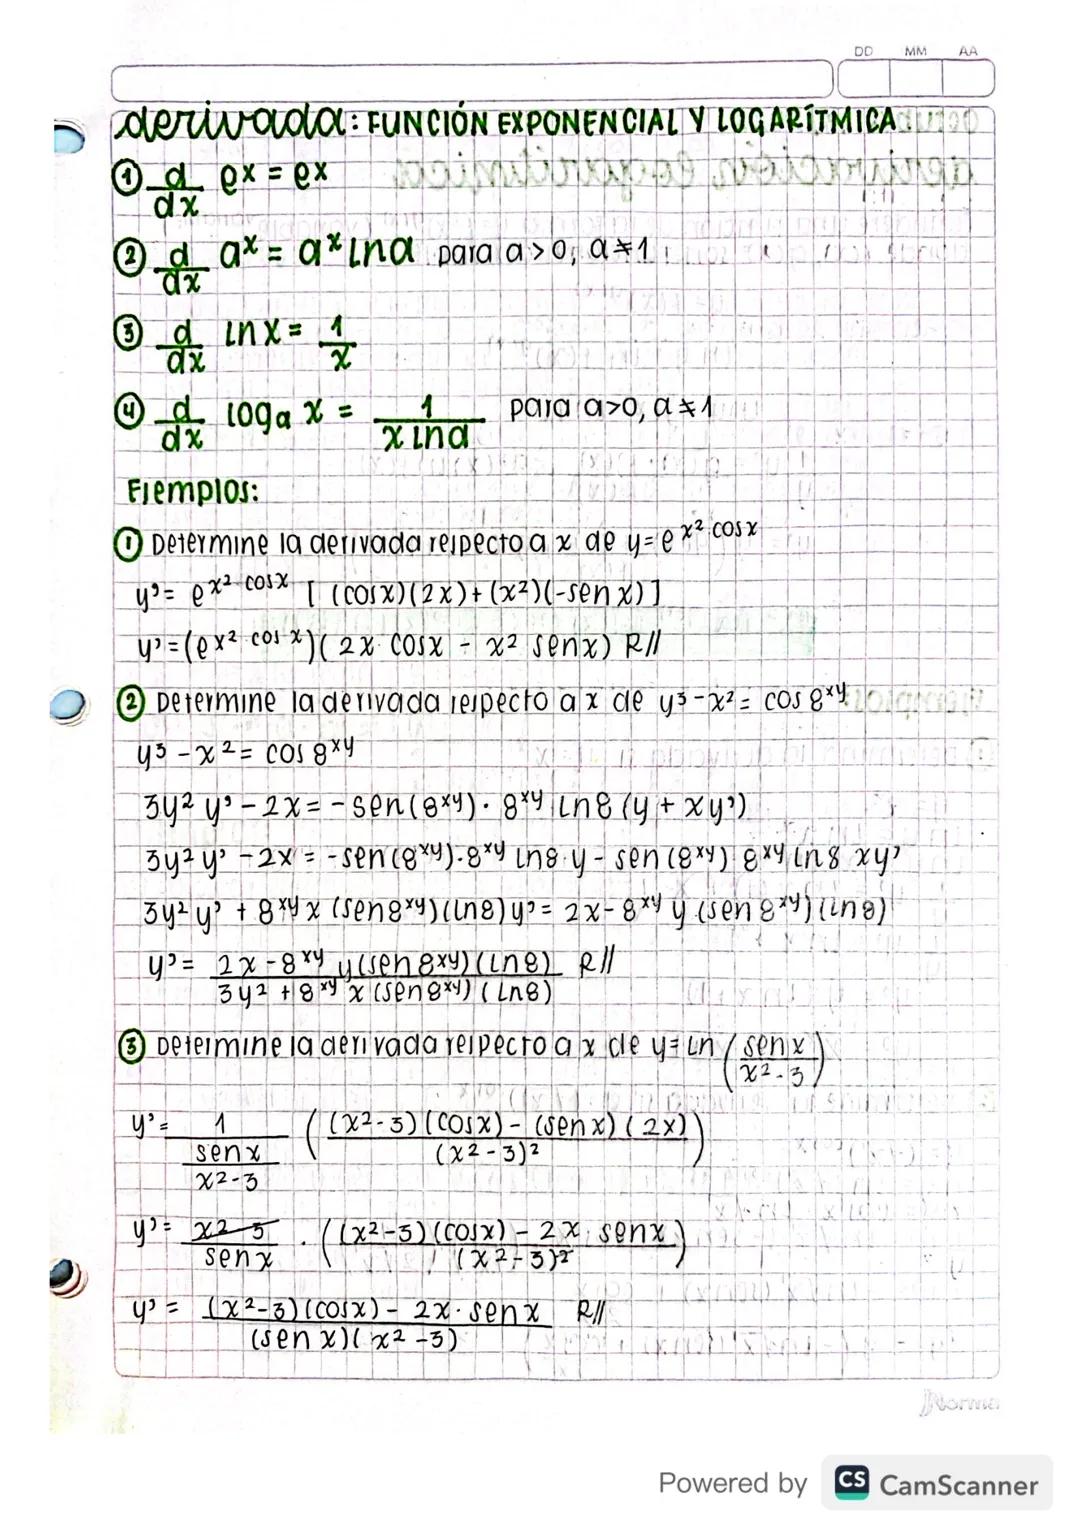 DD MM AA
derivada: FUNCIÓN EXPONENCIAL Y LOGARÍTMICA
① d/dx e^x = e^x
② d/dx a^x = a^x lna para a>0, a≠1
③ d/dx lnx = 1/x
④ d/dx log_a x = 1/(x lna) para a>0, a≠1
Ejemplos:
① Determine la derivada respecto a x de y=e^(x²·cosx)
y'= e^(x²·cosx) [(cosx)(2x)+(x²)(-senx)]
y'=(e^(x²·cosx))(2x·cosx - x² senx) R//
② Determine la derivada respecto a x de y³-x²= cos 8^(xy)
y³-x²= cos 8^(xy)
3y² y' - 2x = -sen(8^(xy))·8^(xy) ln8 (y + xy')
3y² y' - 2x = -sen(8^(xy))·8^(xy) ln8·y - sen(8^(xy)) 8^(xy) ln8 xy'
3y² y' + 8^(xy) x (sen8^(xy))(ln8) y' = 2x - 8^(xy) y (sen8^(xy))(ln8)
y' = (2x - 8^(xy) y(sen8^(xy))(ln8))/(3y² + 8^(xy) x (sen8^(xy))(ln8)) R//
③ Determine la derivada respecto a x de y= ln (senx/(x²-3))
y' = 1/(senx/(x²-3)) (((x²-3)(cosx) - (senx)(2x))/(x²-3)²)
y' = (x²-3)/senx · (((x²-3)(cosx) - 2x·senx)/(x²-3)²)
y' = ((x²-3)(cosx) - 2x·senx)/((senx)(x²-3)) R//
Norma
Powered by CS CamScanner